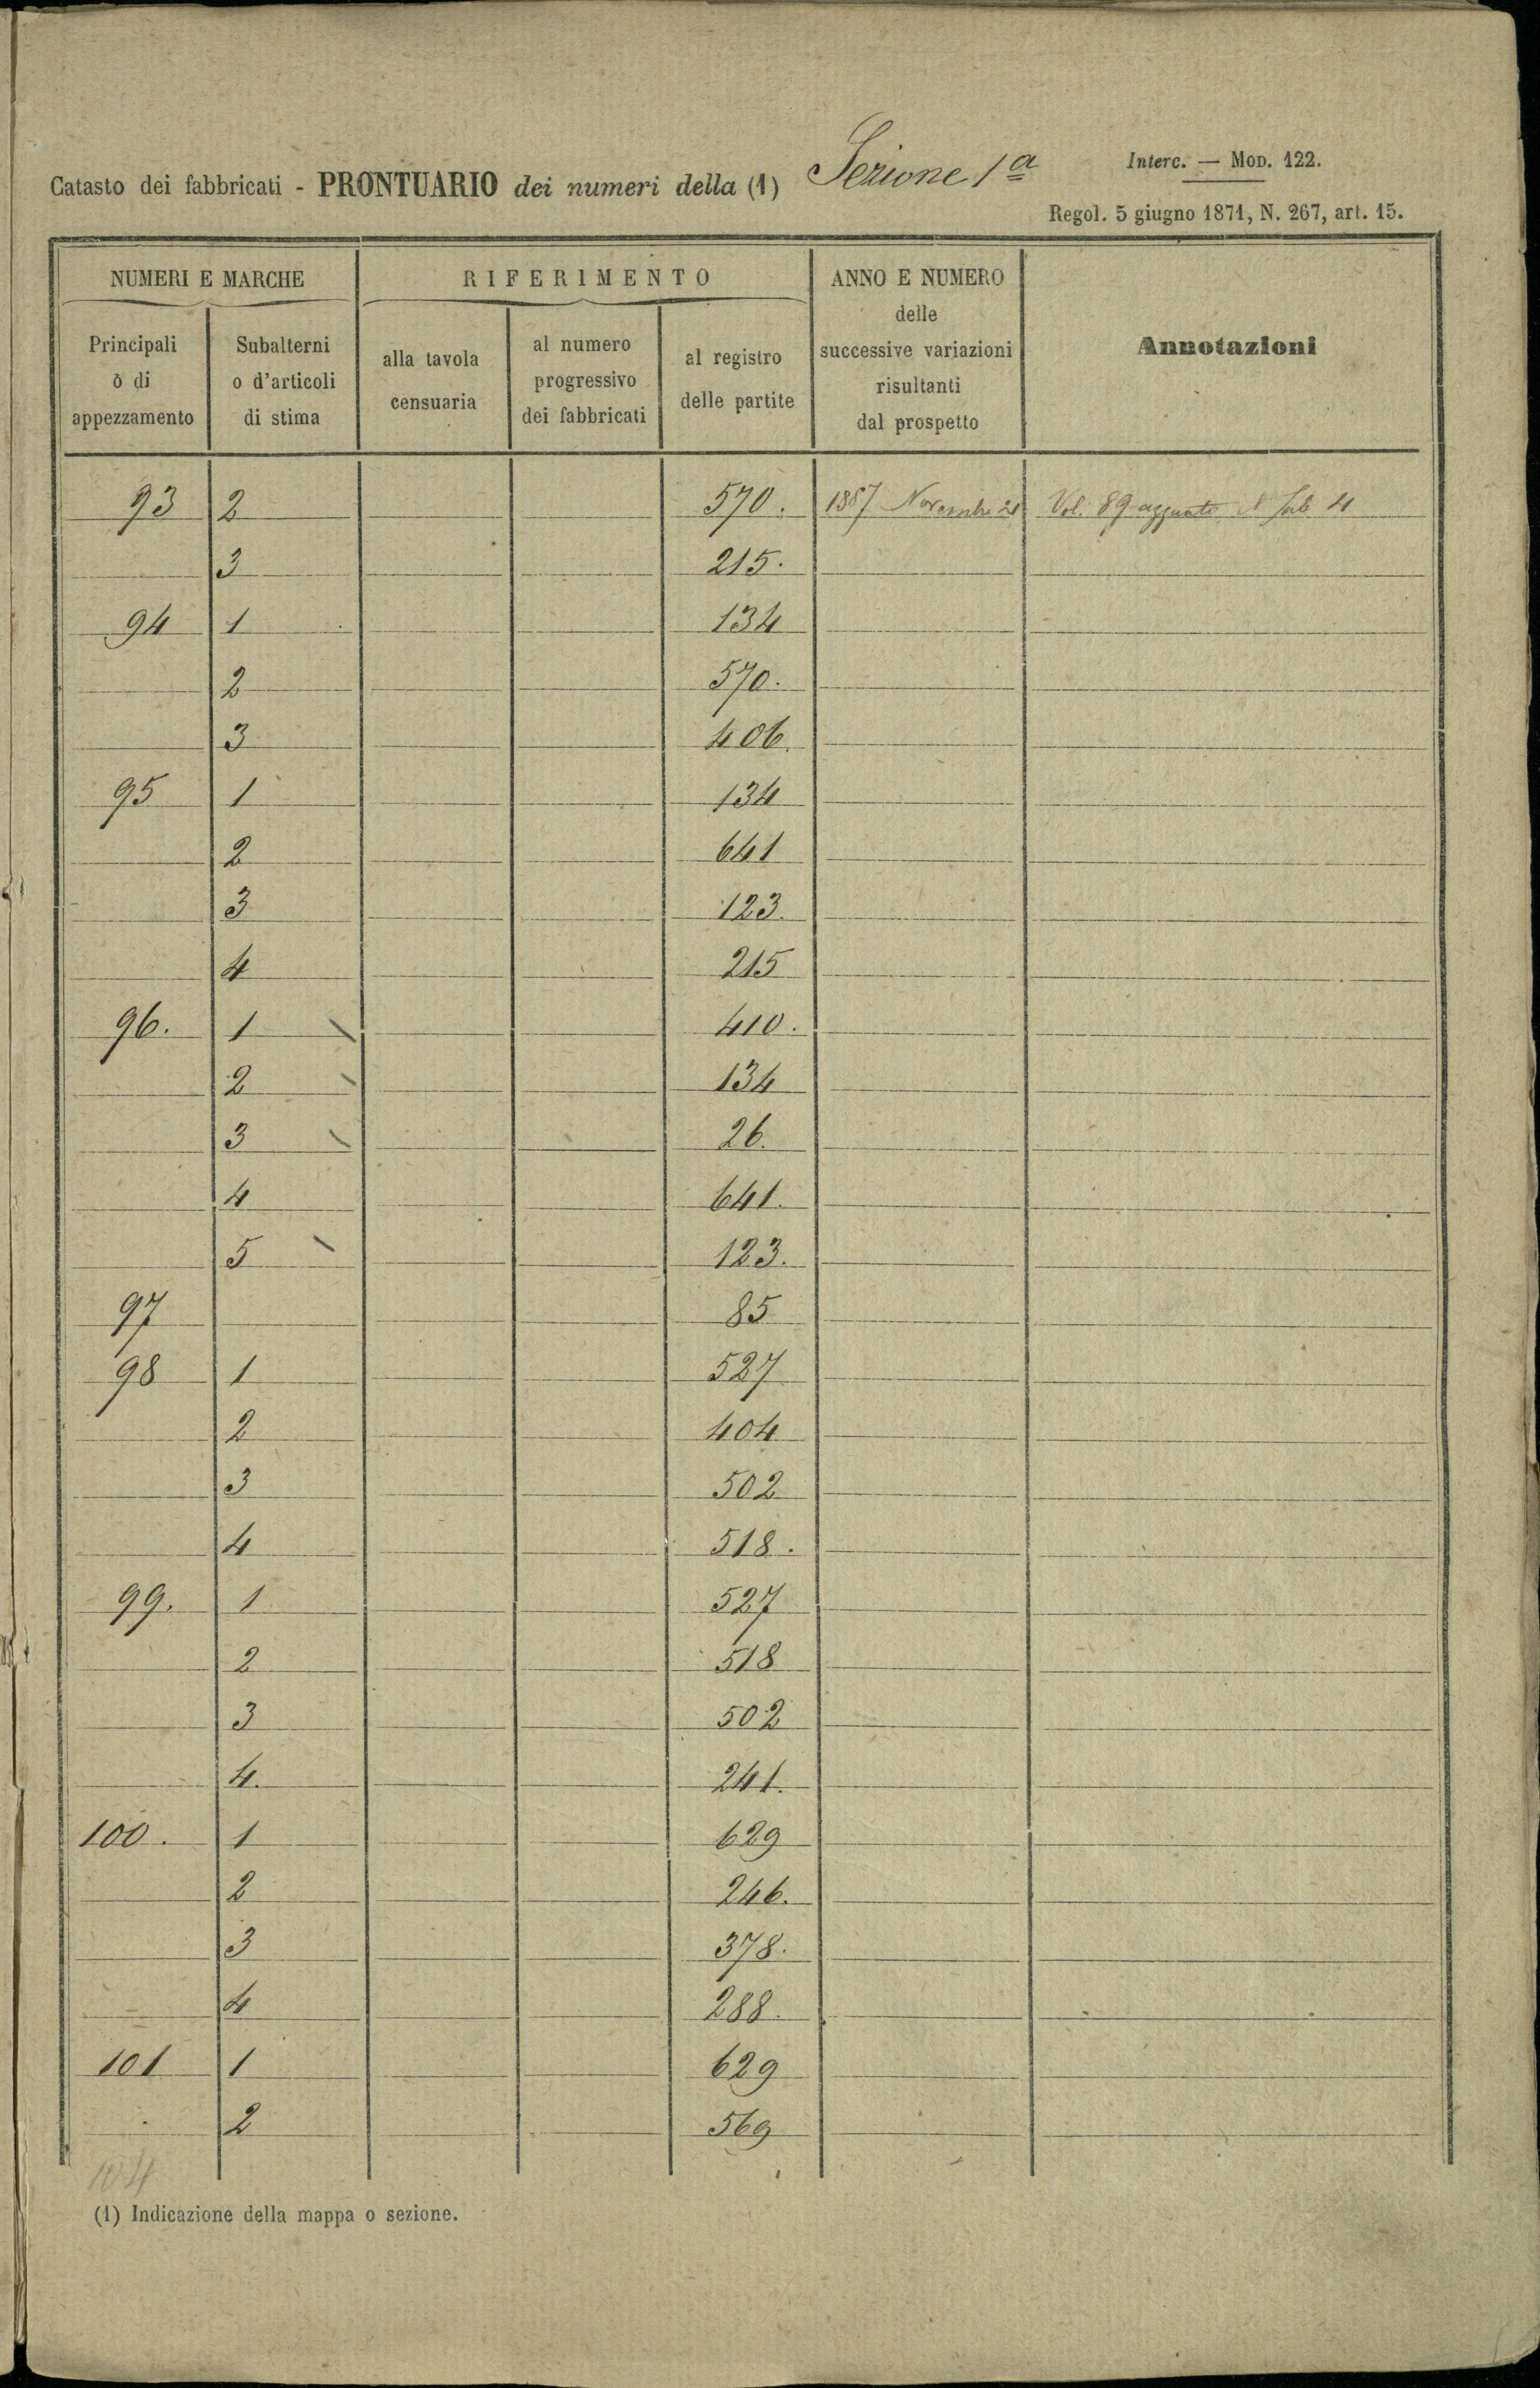 Catasto dei fabbricati - PRONTUARIO dei numeri della (1) Sezione 1ª
Interc. — MOD. 122.
Regol. 5 giugno 1871, N. 267, art. 15.
NUMERI E MARCHE
RIFERIMENTO
ANNO E NUMERO
delle
successive variazioni
risultanti
dal prospetto
Annotazioni
Principali
o di
appezzamento
Subalterni
o d'articoli
di stima
alla tavola
censuaria
al numero
progressivo
dei fabbricati
al registro
delle partite
93 2 570. 1887 Novembre 21 Vol. 89 aggiunto Sub 4
3 215.
94 1 134
2 570.
3 406.
95 1 134
2 641
3 123.
4 215
96. 1 410.
2 134
3 26.
4 641.
5 123.
97 85
98 1 527
2 404
3 502
4 518.
99. 1 527
2 518
3 502
4. 241.
100. 1 629
2 246.
3 378.
4 288.
101 1 629
2 569
104
(1) Indicazione della mappa o sezione.